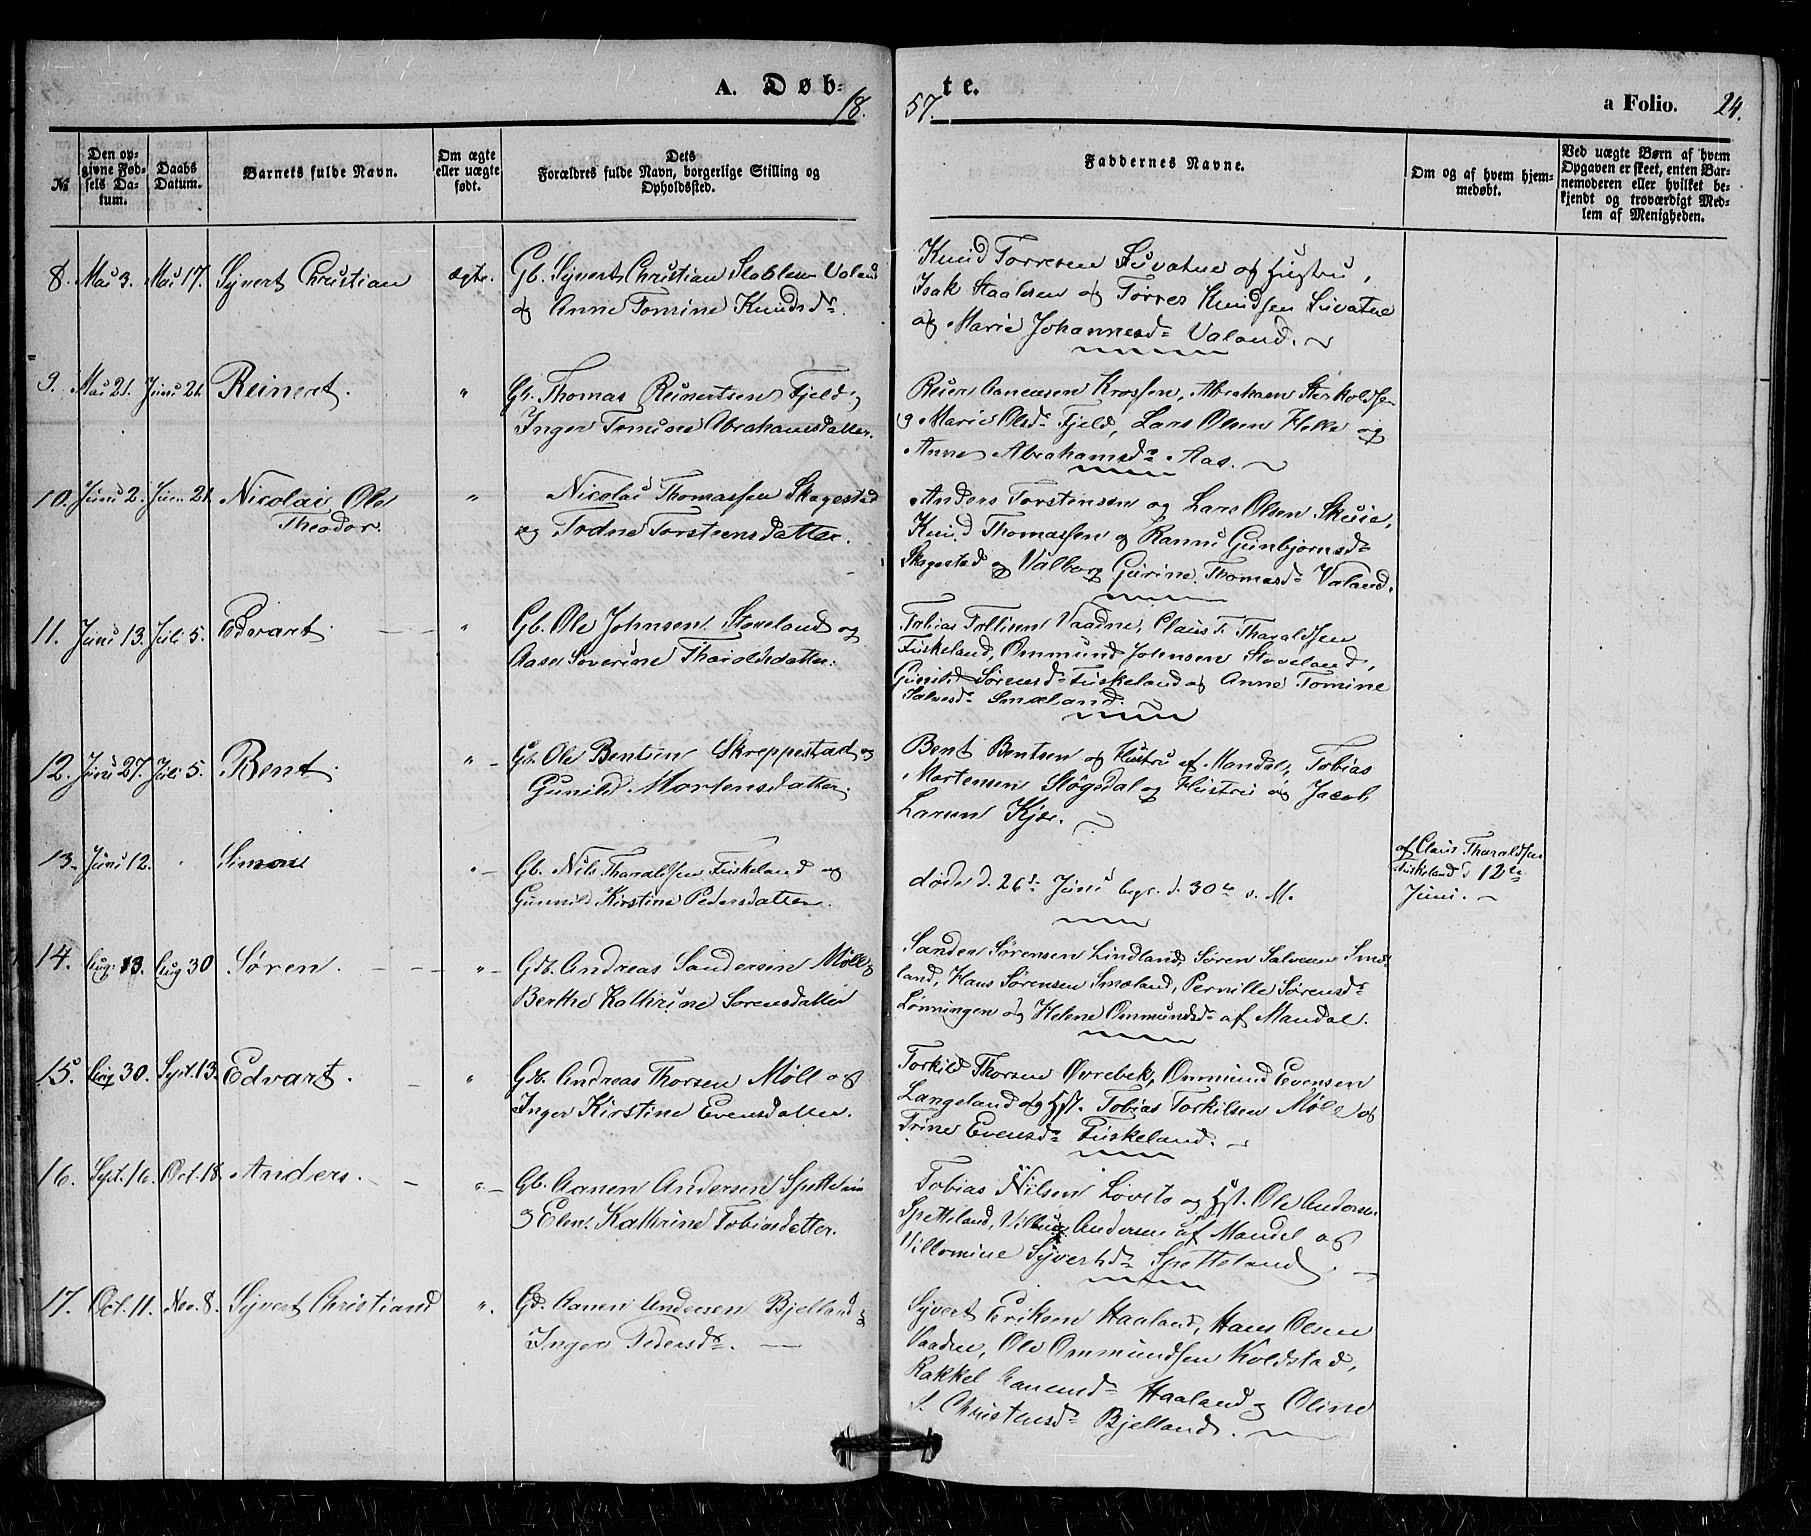 A. Døb-
18
57.
te.
a Folio. 24.
№
Den op-
givne Fød-
sels Da-
tum.
Daabs
Datum.
Barnets fulde Navn.
Om ægte
eller uægte
født.
Dets
Forældres fulde Navn, borgerlige Stilling og
Opholdssted.
Faddernes Navne.
Om og af hvem hjem-
medøbt.
Ved uægte Børn af hvem
Opgaven er skeet, enten Bar-
nemoderen eller hvilket be-
kjendt og troværdigt Med-
lem af Menigheden.
8. Mai 3. Mai 17. Syvert Christian ægte. Gb. Syvert Christian Valand
og Anne Tomine Knudsdr.
Knud Torresen Livatne og Hustru,
Isak Staalesen og Torres Knudsen Livatne
og Marie Johannesdr Valand.
9. Mai 21. Juni 21. Reinert. " Gb. Thomas Reinertsen Fjeld og
Inger Tomine Abrahamsdatter.
Reier Aanensen Krossen, Abraham
og Marie Olsdr Fjeld, Lars Olsen Holle og
Anne Abrahamsdr Aas.
10. Juni 2. Juni 21. Nicolai Ole
Theodor. " Nicolai Thomassen Skagestad
og Todne Torstensdatter.
Anders Torstensen og Lars Olsen Skuie,
Knud Thomassen og Ranni Gunbjørnsdr
Skagestad og Valborg Gurine Thomasdr Valand.
11. Juni 13. Juli 5. Edvart. " Gb. Ole Johnsen Stoveland og
Aase Severine Tharaldsdatter.
Tobias Tollisen Vaadne, Claus T. Tharaldsen
Fuskeland, Ommund Johnsen Stoveland,
Gunild Sørensdr Fuskeland og Anne Tomine
Salvesdr Smæland.
12. Juni 27. Juli 5. Bent. " Gb. Ole Bentsen Skreppestad og
Gunild Mortensdatter.
Bent Bentsen og Hustru af Mandal, Tobias
Mortensen Høgsdal og Hustru og Jacob
Larsen Kjær.
13. Juni 12. Simon " Gb. Nils Tharaldsen Fuskeland og
Gunnild Kirstine Pedersdatter.
døde d. 26de Juni begr. d. 30te s. M.
af Claus Tharaldsen
Fuskeland d 12te
Juni.
14. Aug. 13. Aug 30 Søren. " Gdb. Andreas Sandersen Møll og
Berthe Kathrine Sørensdatter
Sander Sørensen Lindland, Søren Salvesen Smæ-
land, Hans Sørensen Smæland, Pernille Sørensdr
Lønningen og Helene Ommundsdr af Mandal.
15. Aug 30. Sept. 13. Edvart. " Gdb. Andreas Thorsen Møll og
Inger Kirstine Evensdatter.
Torkild Thorsen Øvrebek, Ommund Evensen
Langeland og Hst. Tobias Torkilsen Møll og
Trine Evensdr Fuskeland.
16. Sept. 16. Oct. 18. Anders. " Gb. Aanen Andersen Spetteland
og Elene Kathrine Tobiasdatter.
Tobias Nilsen Lovsto og Hst. Ole Andersen
Spetteland, Andersen af Mandal og
Villomine Syvertsdr Spetteland.
17. Oct. 11. Nov. 8. Syvert Christiand ". Gb. Aanen Andersen Bjelland og
Inger Pedersdr.
Syvert Eriksen Haaland, Hans Olsen
Vaadne, Ole Ommundsen Koldstad,
Rakkel Aanensdr Haaland og Oline
S. Christensdr Bjelland.